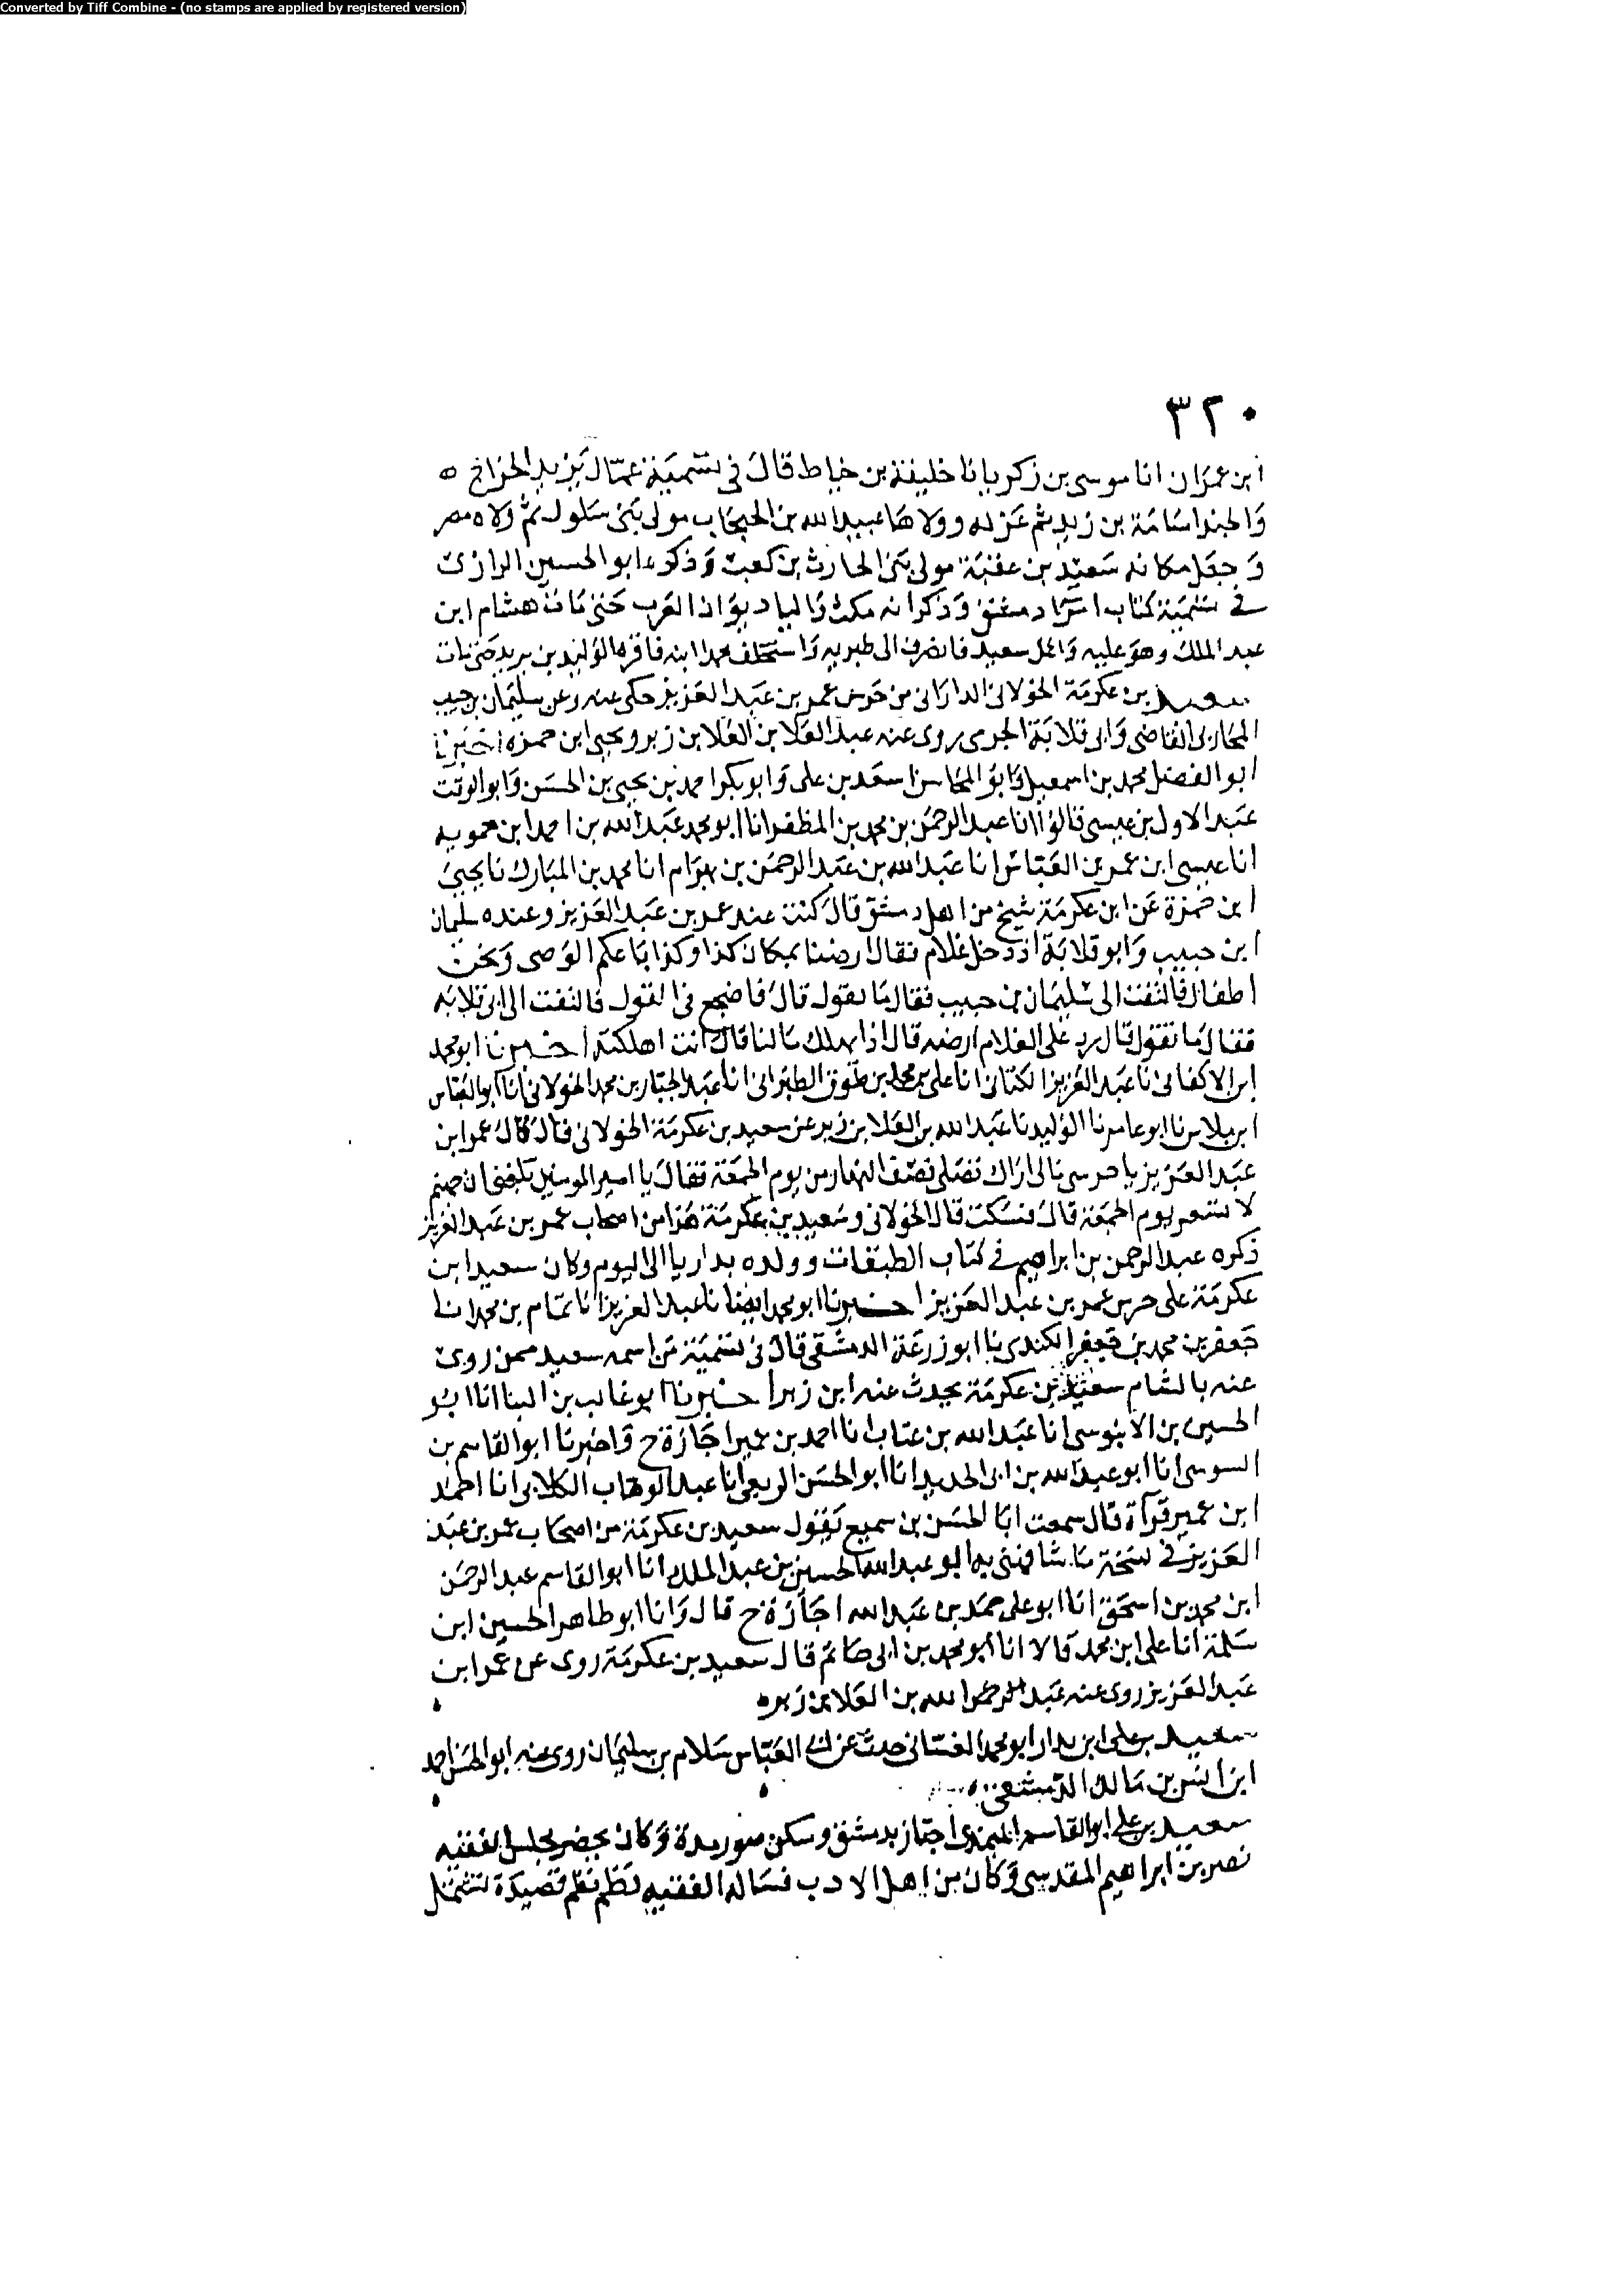 Converted by Tiff Combine - (no stamps are applied by registered version)
٣٢٠
ابن عمران انا موسى بن زكريا نا خليفة بن خياط قال في تسمية عمال يزيد الخراج
والجند اسامة بن زيد ثم عزله وولاها عبيد الله بن الحبحاب مولى بني سلول ثم ولاه مصر
وجعل مكانه سعيد بن عقبة مولى بني الحارث بن كعب وذكره ابو الحسين الرازي
في تسمية كتاب امرا دمشق وذكر انه مكث واليا ديوان العرب حتى مات هشام ابن
عبد الملك وهو عليه سعيد فانصرف الى طبريه واستخلف محمدا ابنه فاقره الوليد بن يزيد حتى مات
سعيد بن عكرمة الخولاني الداراني من حرس عمر بن عبد العزيز حكى عنه وعن سليمان بن حبيب
المحاربى القاضى وابى قلابة الجرمى روى عنه عبد العلا بن العلا بن زبر ويحيى ابن حمزه اخبرنا
ابو الفضل محمد بن اسمعيل وابو المحاسن اسعد بن على وابو بكر احمد بن يحيى بن الحسن وابو الوقت
عبد الاول بن عيسى قالوا انا عبد الرحمن بن محمد بن المظفر انا ابو محمد عبد الله بن احمد ابن حمويه
انا عيسى ابن عمر بن العباس انا عبد الله بن عبد الرحمن بن بهرام انا محمد بن المبارك نا يحيى
ابن حمزة عن ابن عكرمة شيخ من اهل دمشق قال كنت عند عمر بن عبد العزيز وعنده سليمان
ابن حبيب وابو قلابة اذ دخل غلام فقال ارضنا بمكان كذا وكذا باعكم الوصى ونحن
اطفال فالتفت الى سليمان بن حبيب فقال ما تقول قال فاضجع في القول فالتفت الى ابى قلابه
فقال ما تقول قال رد على الغلام ارضه قال اذا يهلك مالنا قال انت اهلكته اخبرنا ابو محمد
ابن الاكفانى نا عبد العزيز الكتانى انا على بن محمد بن طوق الطبرانى انا عبد الجبار بن محمد الخولانى انا ابو العباس
ابن ملاس نا ابو عامر نا الوليد نا عبد الله بن العلا بن زبر عن سعيد بن عكرمة الخولانى قال قال عمر ابن
عبد العزيز يا حرسى مالى اراك تصلى نصف النهار من يوم الجمعة فقال يا امير المومنين بلغنى ان جهنم
لا تسعر يوم الجمعة قال فسكت قال الخولانى وسعيد بن عكرمة هذا من اصحاب عمر بن عبد العزيز
ذكره عبد الرحمن بن ابراهيم في كتاب الطبقات وولده بداريا الى اليوم وكان سعيد ابن
عكرمة على حرس عمر بن عبد العزيز اخبرنا ابو محمد ايضا نا عبد العزيز انا تمام بن محمد انا
جعفر بن محمد بن جعفر الكندى نا ابو زرعة الدمشقى قال في تسمية من اسمه سعيد ممن روى
عنه بالشام سعيد بن عكرمة يحدث عنه ابن زبر اخبرنا ابو غالب بن البنا انا ابو
الحسين بن الابنوسى انا عبد الله بن عتاب انا احمد بن عمير اجازة ح واخبرنا ابو القاسم بن
السوسى انا ابو عبد الله بن ابى الحديد انا ابو الحسن الربعى انا عبد الوهاب الكلابى انا احمد
ابن عمير قرآة قال سمعت ابا الحسن بن سميع يقول سعيد بن عكرمة من اصحاب عمر بن عبد
العزيز في نسخة ما شافهنى به ابو عبد الله الحسين بن عبد الملك انا ابو القاسم عبد الرحمن
ابن محمد بن اسحق انا ابو على حمد بن عبد الله اجازة ح قال وانا ابو طاهر الحسين ابن
سلمة انا على ابن محمد قالا انا ابو محمد بن ابى حاتم قال سعيد بن عكرمة روى عن عمر ابن
عبد العزيز روى عنه عبد الله بن العلا بن زبر
سعيد بن على ابن بدار ابو محمد الغسانى حدث عن ابى العباس سلام بن سليمان روى عنه ابو الحسن احمد
ابن انس بن مالك الدمشقى
سعيد بن على ابو القاسم اجتاز بدمشق وسكن صور مدة وكان يحضر مجلس الفقيه
نصر بن ابراهيم المقدسى وكان من اهل الادب فساله الفقيه نظم قصيدة تشتمل